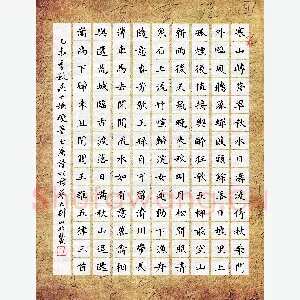 寒山轉蒼翠秋水日潺湲倚杖柴門
外臨風聽暮蟬渡頭餘落日墟里上
孤煙復值接輿醉狂歌五柳前空山
新雨後天氣晚來秋明月松間照清
泉石上流竹喧歸浣女蓮動下漁舟
隨意春芳歇王孫自可留清川帶長
薄車馬去閒閒流水如有意暮禽相
與還荒城臨古渡落日滿秋山迢遞
嵩高下歸來且閉關王維五律三首
乙未季秋